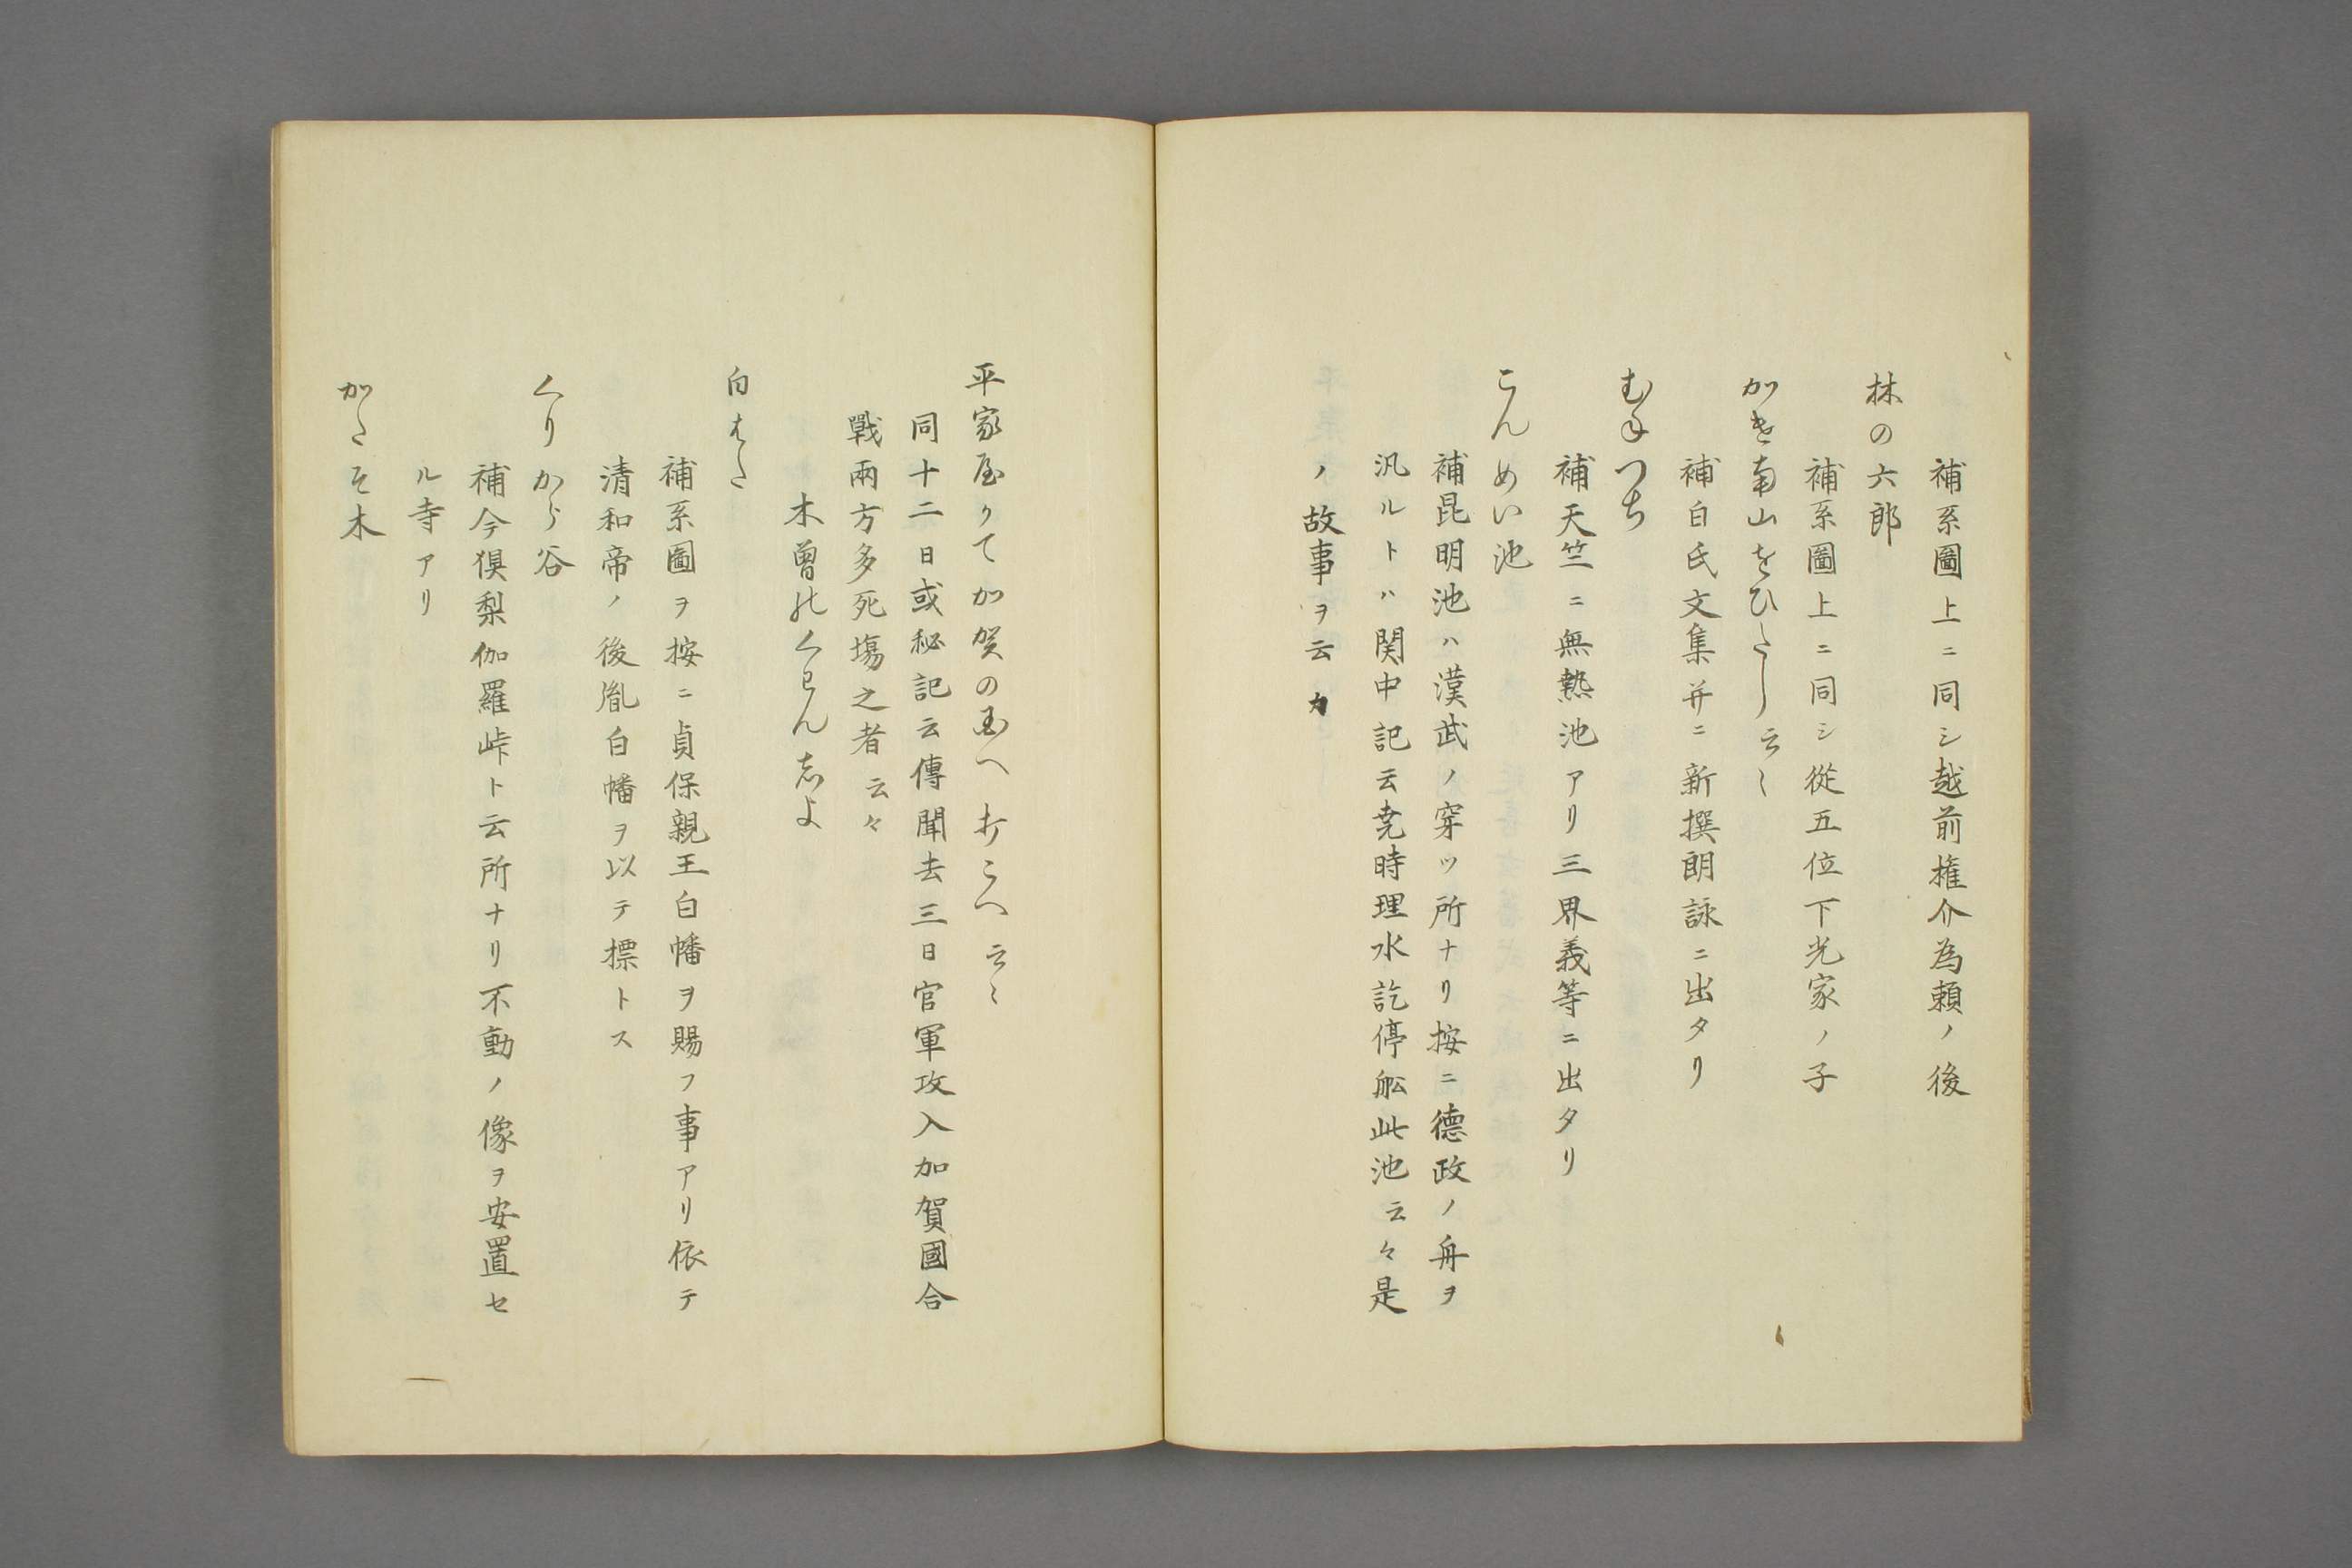 補系圖上ニ同シ越前権介為頼ノ後
林の六郎
補系圖上ニ同シ從五位下光家ノ子
かき南山をひたし云〻
補白氏文集并ニ新撰朗詠ニ出タリ
むねつち
補天竺ニ無熱池アリ三界義等ニ出タリ
こんめい池
補昆明池ハ漢武ノ穿ツ所ナリ按ニ德政ノ舟ヲ
汎ルトハ関中記云尭時理水訖停舩此池云々是
ノ故事ヲ云カ
平家屋りて加賀の国へ打こへ云〻
同十二日或秘記云傳聞去三日官軍攻入加賀國合
戰兩方多死塲之者云々
木曽のくわん志よ
白はた
補系圖ヲ按ニ貞保親王白幡ヲ賜フ事アリ依テ
清和帝ノ後胤白幡ヲ以テ標トス
くりから谷
補今倶梨伽羅峠ト云所ナリ不動ノ像ヲ安置セ
ル寺アリ
かたそ木